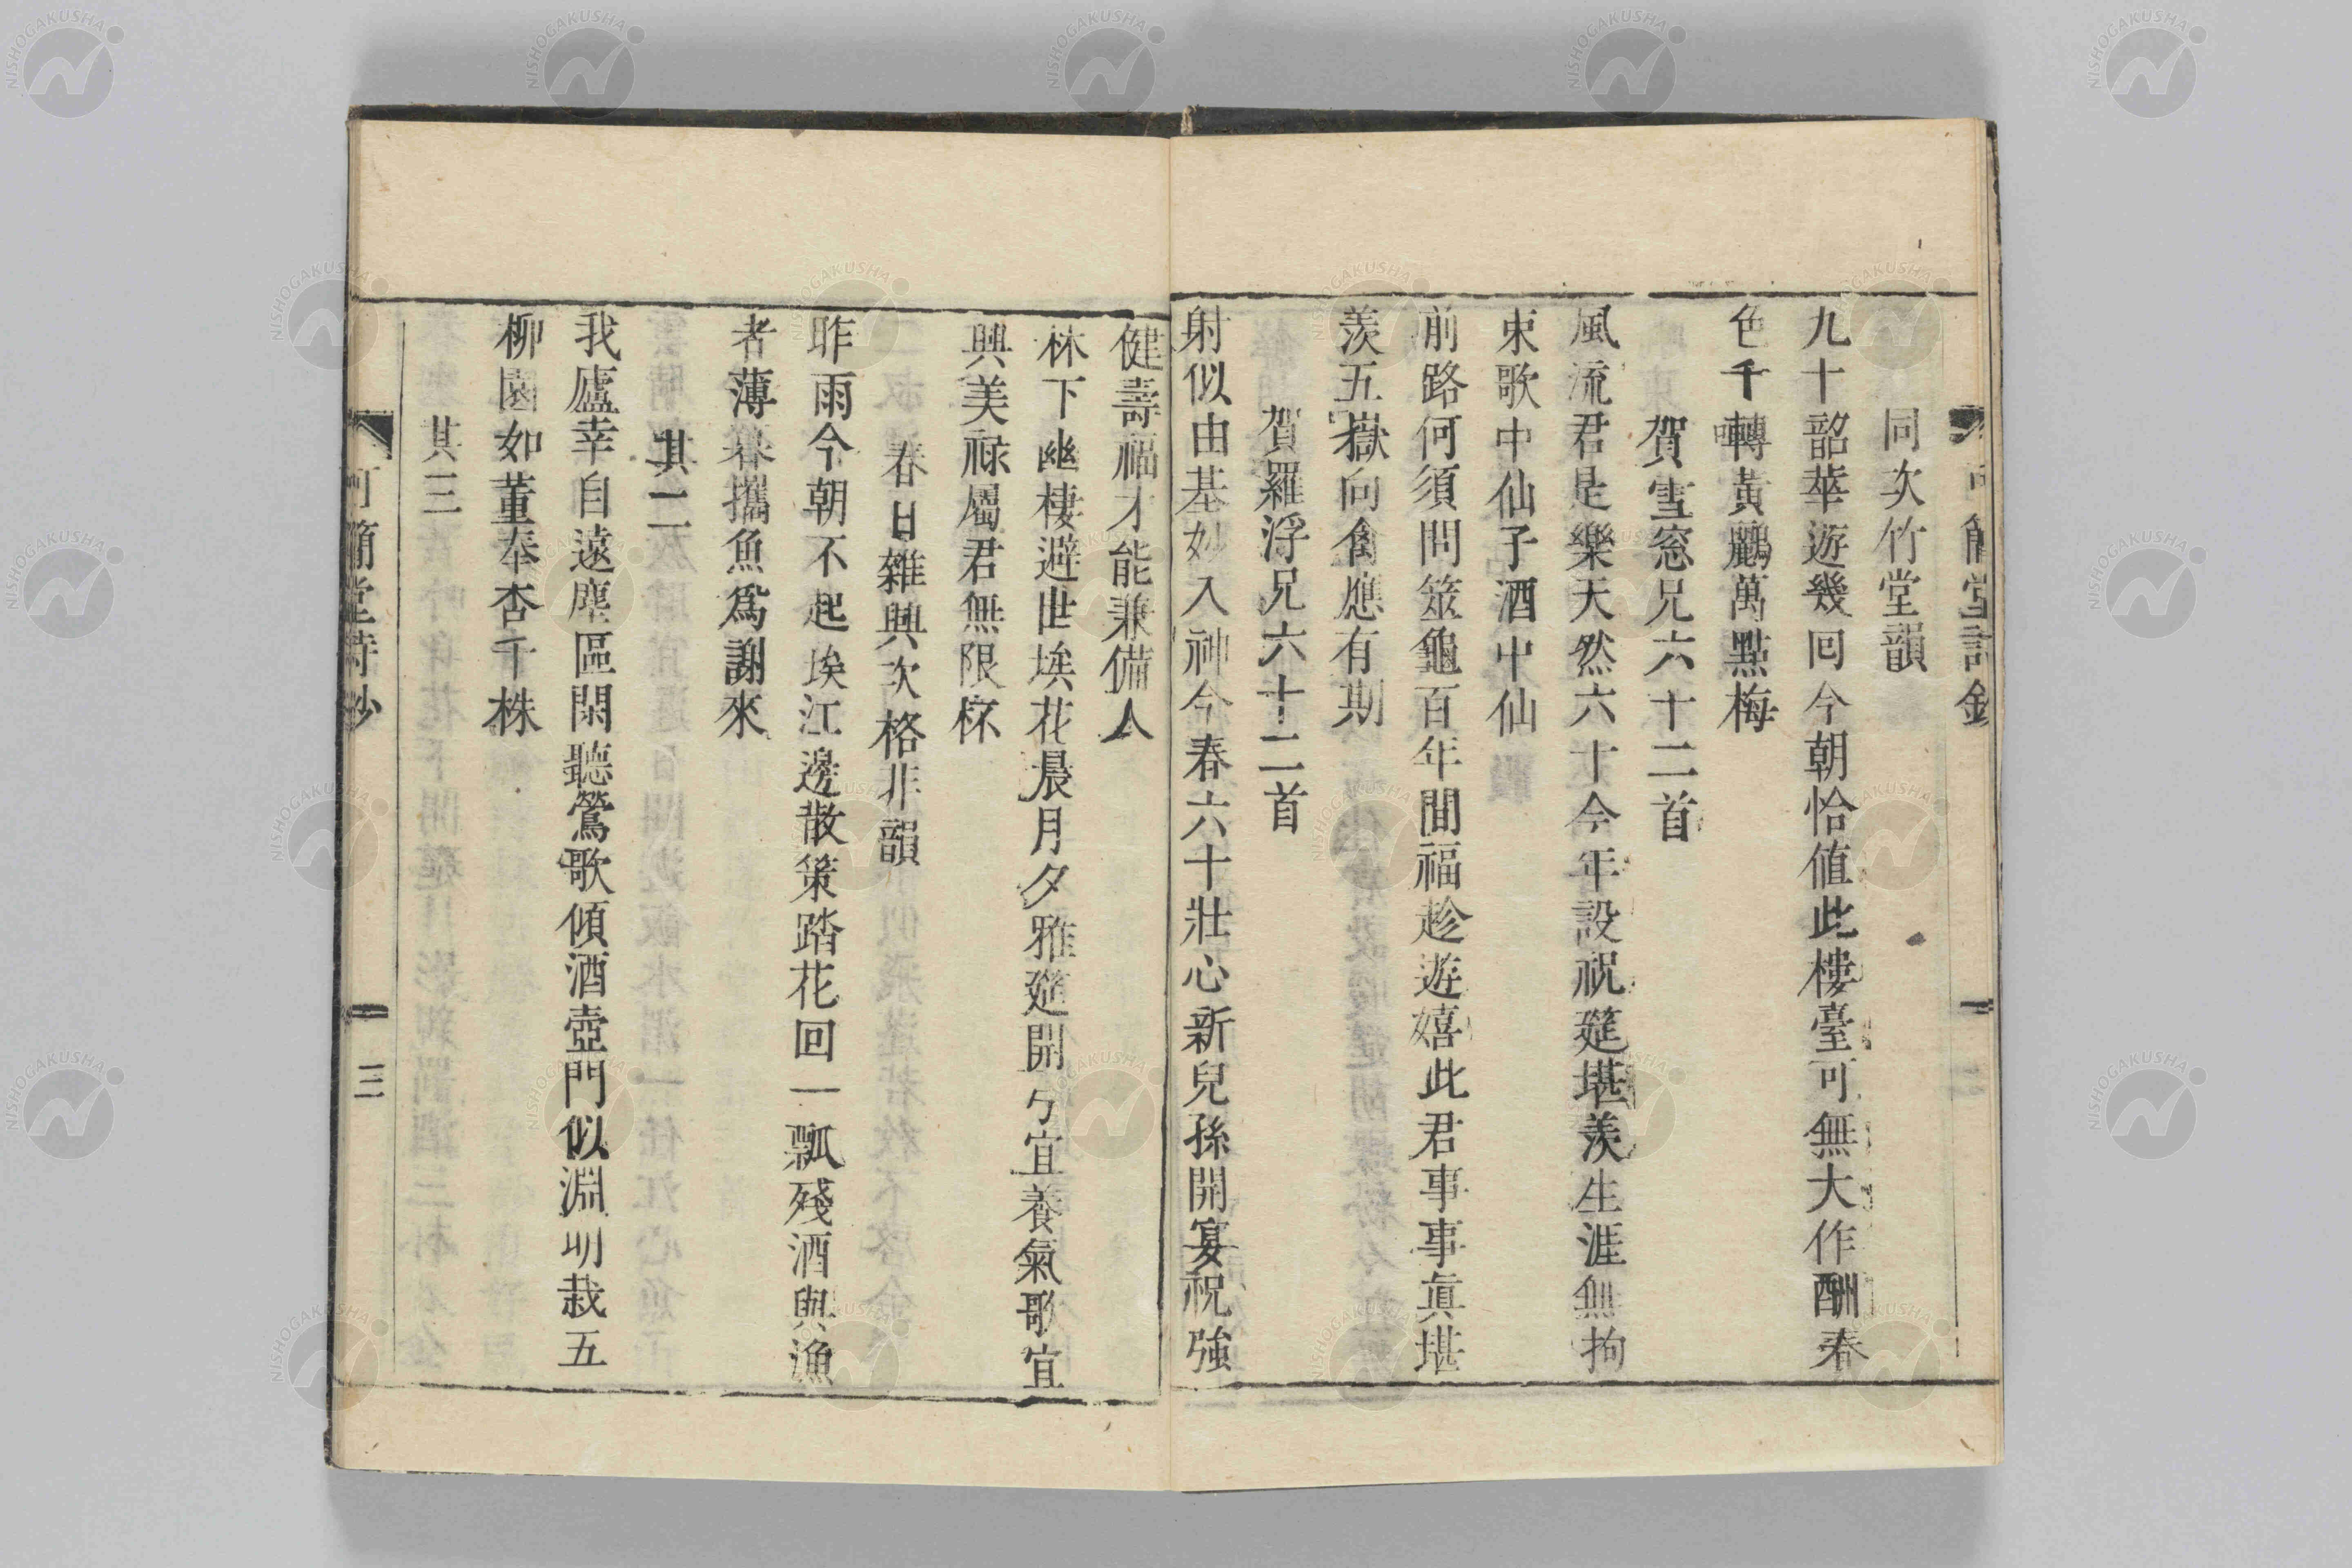 同次竹堂韻
九十韶華遊幾回今朝恰値此樓臺可無大作酬春
色千囀黃鸝萬點梅
賀雪窓兄六十二首
風流君是樂天然六十今年設祝筵堪羨生涯無拘
束歌中仙子酒中仙
前路何須問筮龜百年間福趁遊嬉此君事事眞堪
羨五嶽向禽應有期
賀羅浮兄六十二首
射似由基妙入神今春六十壯心新兒孫開宴祝強
健壽福才能兼備人
林下幽棲避世埃花晨月夕雅筵開弓宜養氣歌宜
興美祿屬君無限杯
春日雜興次格非韻
昨雨今朝不起埃江邊散策踏花回一瓢殘酒與漁
者薄暮攜魚爲謝來
其二
我廬幸自遠塵區閑聽鶯歌傾酒壺門似淵明栽五
柳園如董奉杏千株
其三
可簡堂詩鈔
三
NISHOGAKUSHA